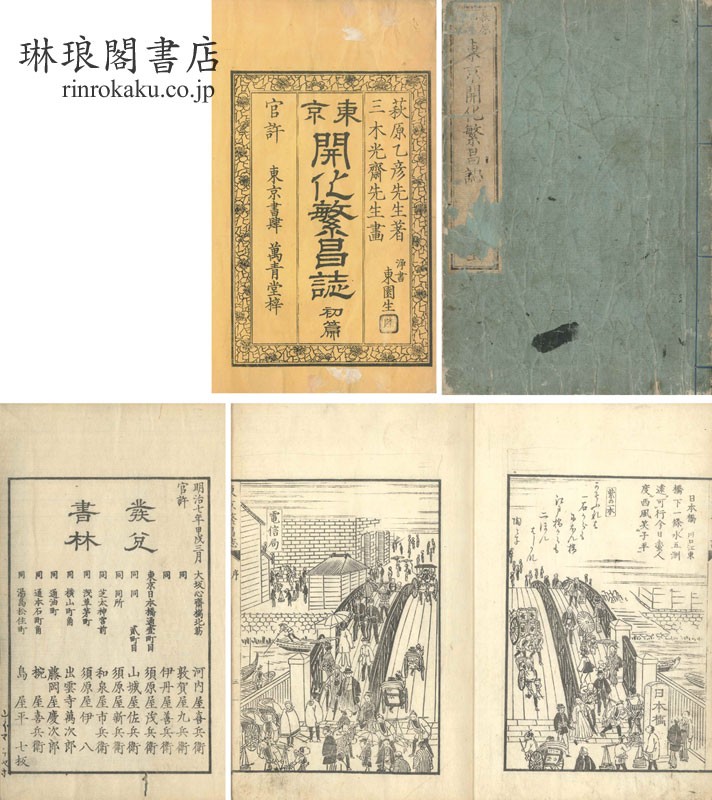 琳琅閣書店
rinrokaku.co.jp
荻原乙彦先生著
三木光齋先生畫
浄書
東園生
東京
開化繁昌誌
初篇
官許
東京書肆 萬青堂梓
東京開化繁昌誌
明治七年甲戌三月
官許
發兌
書林
大坂心齋橋北筋 河内屋喜兵衛
同 敦賀屋九兵衛
同 伊丹屋善兵衛
東京日本橋通壹町目 須原屋茂兵衛
同 同 貳町目 山城屋佐兵衛
同 同所 須原屋新兵衛
同 芝太神宮前 和泉屋市兵衛
同 浅草茅町 須原屋伊八
同 横山町角 出雲寺萬次郎
同 通油町 藤岡屋慶次郎
同 通本石町角 椀屋喜兵衛
同 湯島松住町 島屋平七板
日本橋
橋下一條水
電信局
日本橋